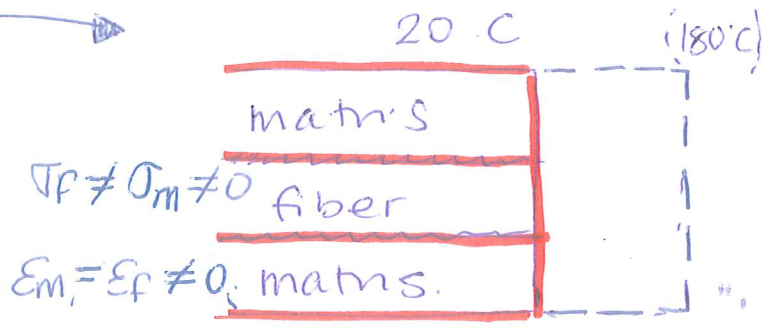 20 C (180°C)
matris
σf ≠ σm ≠ 0 fiber
εm = εf ≠ 0; matris.